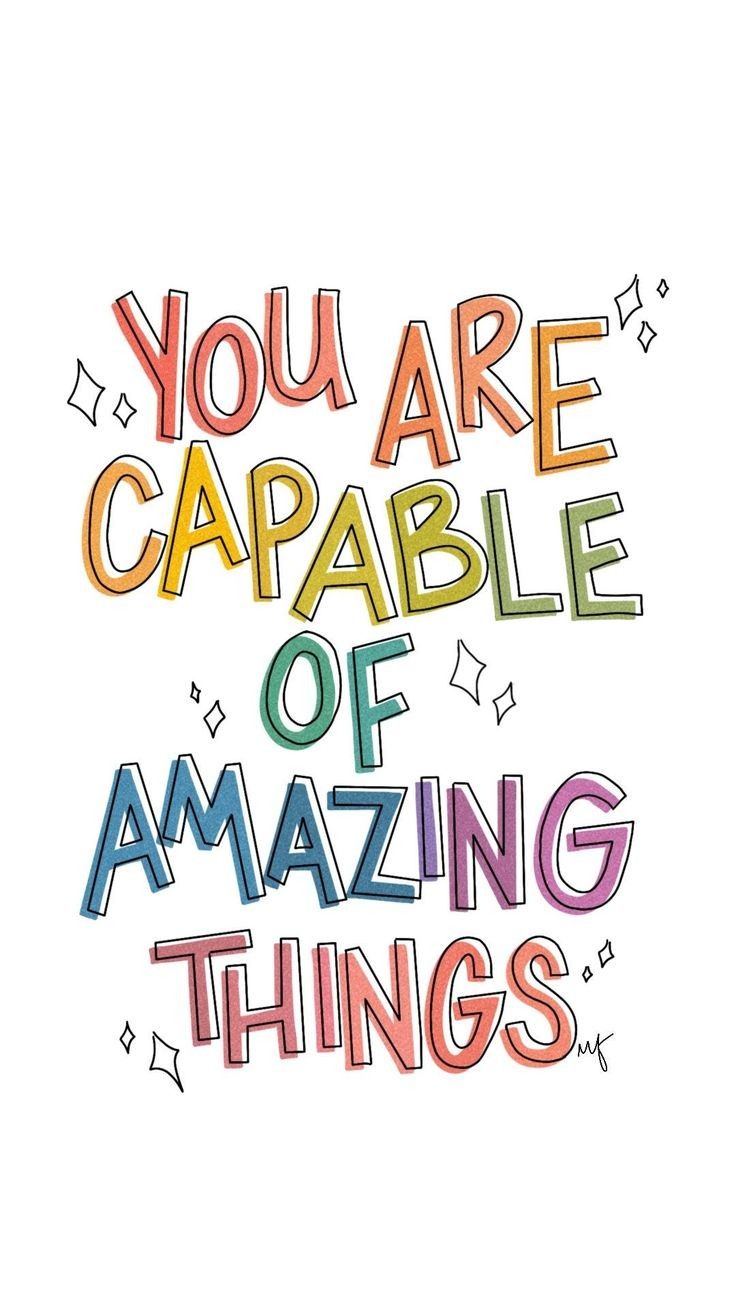 YOU ARE
CAPABLE
OF
AMAZING
THINGS